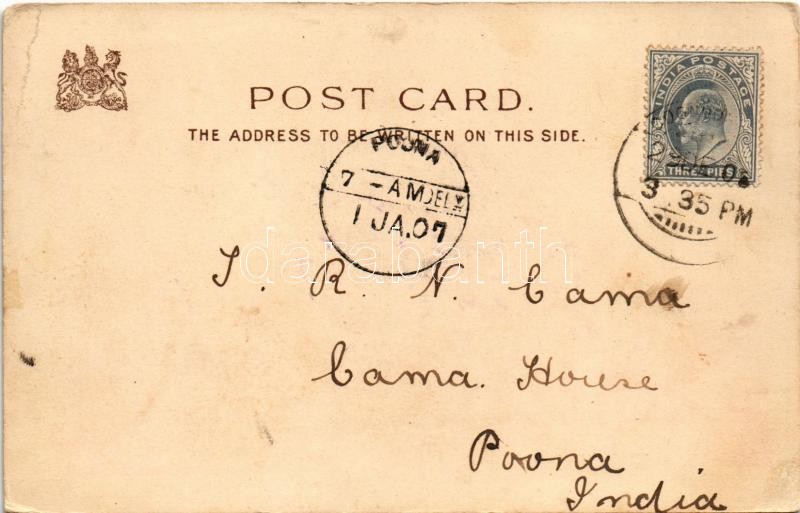 POST CARD.
THE ADDRESS TO BE WRITTEN ON THIS SIDE.
INDIA POSTAGE
THREE PIES
POONA
7 - AM DELY
1 JA.07
3.35 PM
J. R. N. Cama
Cama. House
Poona
India
darabanth